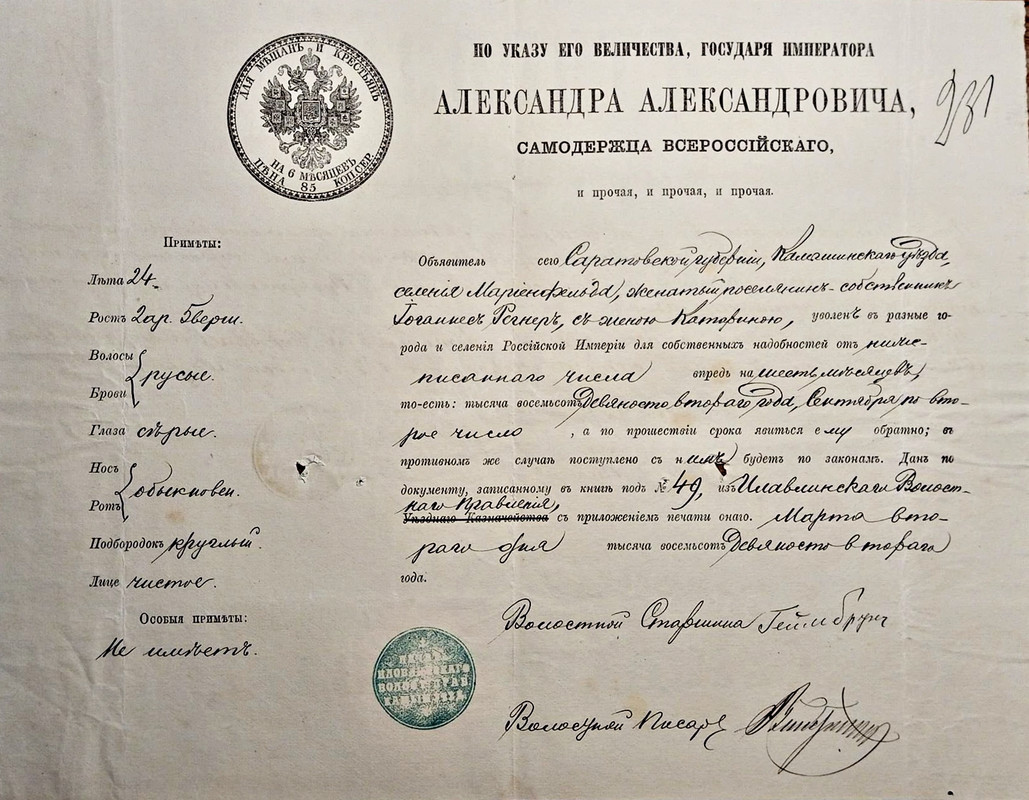 ДЛЯ МѢЩАНЪ И КРЕСТЬЯНЪ
НА 6 МѢСЯЦЕВЪ
ЦѢНА 85 КОП.СЕР.
ПО УКАЗУ ЕГО ВЕЛИЧЕСТВА, ГОСУДАРЯ ИМПЕРАТОРА
АЛЕКСАНДРА АЛЕКСАНДРОВИЧА,
САМОДЕРЖЦА ВСЕРОССІЙСКАГО,
и прочая, и прочая, и прочая.
931
Примѣты:
Лѣта 24.
Ростъ 2 ар. 5 верш.
Волосы
Брови
русые.
Глаза сѣрые.
Носъ
Ротъ
обыкновен.
Подбородокъ круглый.
Лице чистое.
Особыя примѣты:
Не имѣетъ.
Объявитель сего Саратовской губерніи, Камышинскаго уѣзда,
селенія Маріенфельда, женатый поселянинъ-собственникъ
Іоганнес Регнер, съ женою Катариною, уволенъ въ разные го-
рода и селенія Россійской Имперіи для собственныхъ надобностей отъ ниже-
писаннаго числа впредь на шесть мѣсяцевъ,
то-есть: тысяча восемьсотъ Девяносто втораго года, Сентября по вто-
рое число, а по прошествіи срока явиться ему обратно; въ
противномъ же случаѣ поступлено съ нимъ будетъ по законамъ. Данъ по
документу, записанному въ книгѣ подъ № 49, изъ Илавлинскаго Волост-
наго Правленія,
Уѣзднаго Казначейства съ приложеніемъ печати онаго. Марта вто-
раго дня тысяча восемьсотъ Девяносто втораго
года.
Волостной Старшина Геймбрух
Волостной Писарь
ПЕЧАТЬ
ИЛОВЛИНСКАГО
ВОЛОСТНАГО
ПРАВЛЕНІЯ